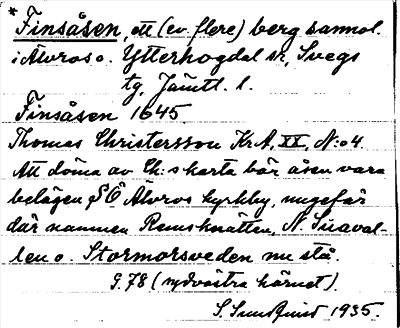 * Finsåsen, ett (ev. flere) berg sannol.
i Älvros o. Ytterhogdal sn, Svegs
tg, Jämtl. l.
Finsåsen 1645.
Thomas Christersson Kr.A, XX, N:o 4.
Att döma av Ch:s karta bör åsen vara
belägen S Ö Älvros kyrkby, ungefär
där namnen Remsknätten, N.
len o. Stormorsveden nu stå.
G.78 (sydvästra hörnet).
S. Sundquist 1935.